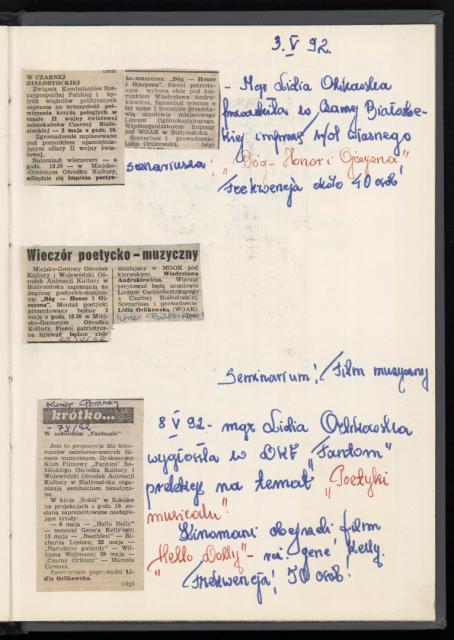 3.V 92.
W CZARNEJ
BIAŁOSTOCKIEJ
Związek Kombatantów Rze-
czypospolitej Polskiej i by-
łych więźniów politycznych
zaprasza na uroczystość poś-
więcenia krzyża poległych w
czasie II wojny światowej
mieszkańców Czarnej Biało-
stockiej — 3 maja o godz. 16.
Zgromadzenie zaplanowano
pod pomnikiem upamiętnia-
jącym ofiary II wojny świa-
towej.
Natomiast wieczorem — o
godz. 18.30 — w Miejskim
Ośrodku Kultury
odbędzie się impreza poetyc-
ko-muzyczna: „Bóg — Honor
i Ojczyzna". Pieśni patrioty-
czne wykona chór pod kie-
runkiem Władysława Andru-
kiewicza. Natomiast wiersze o
tej samej tematyce przedsta-
wią uczniowie miejscowego
Liceum Ogólnokształcącego.
Współorganizatorem imprezy
jest WOAK w Białymstoku.
Scenariusz i prowadzenie:
Lidia Orlikowska. (elp)
- Mgr Lidia Orlikowska
prowadziła w Czarnej Białostoc-
kiej imprezę wg własnego
scenariusza: "Bóg - Honor i Ojczyzna"
Frekwencja około 40 osób!
Wieczór poetycko-muzyczny
Miejsko-Gminny Ośrodek
Kultury i Wojewódzki Oś-
rodek Animacji Kultury w
Białymstoku zapraszają na
imprezę poetycko-muzycz-
ną: „Bóg — Honor i Oj-
czyzna". Montaż poetycki
prezentowany będzie 3
maja o godz. 18.30 w Miej-
sko-Gminnym Ośrodku
Kultury. Pieśni patriotycz-
ne śpiewać będzie chór
działający w MGOK pod
kierunkiem Władysława
Andrukiewicza. Wiersze
recytować będą uczniowie
Liceum Ogólnokształcącego
z Czarnej Białostockiej.
Scenariusz i prowadzenie:
Lidia Orlikowska (WOAK).
Seminarium! Film muzyczny
Kurier Poranny
- 7V/92
krótko...
W sokólskim „Fantomie"
Jest to propozycja dla kino-
manów zainteresowanych fil-
mem muzycznym. Dyskusyjny
Klub Filmowy „Fantom" So-
kólskiego Ośrodka Kultury i
Wojewódzki Ośrodek Animacji
Kultury w Białymstoku orga-
nizują seminarium tematycz-
ne.
W kinie „Sokół" w Sokółce
na projekcjach o godz. 19. zo-
staną zaprezentowane następu-
jące tytuły:
— 8 maja — „Hello Dolly"
— musical Gene'a Kelly'ego;
15 maja — „Beatlesi" — Ri-
charda Lestera; 22 maja —
„Narodziny gwiazdy" — Wil-
liama Wellmana; 29 maja —
„Czarny Orfeusz" — Marcela
Camusa.
Seminarium poprowadzi Li-
dia Orlikowska.
(elp)
8 V 92 - mgr Lidia Orlikowska
wygłosiła w DKF "Fantom"
prelekcję na temat "Poetyki
musicalu".
Kinomani obejrzeli film
"Hello Dolly" - reż. gene' Kelly.
Frekwencja: 50 osób!